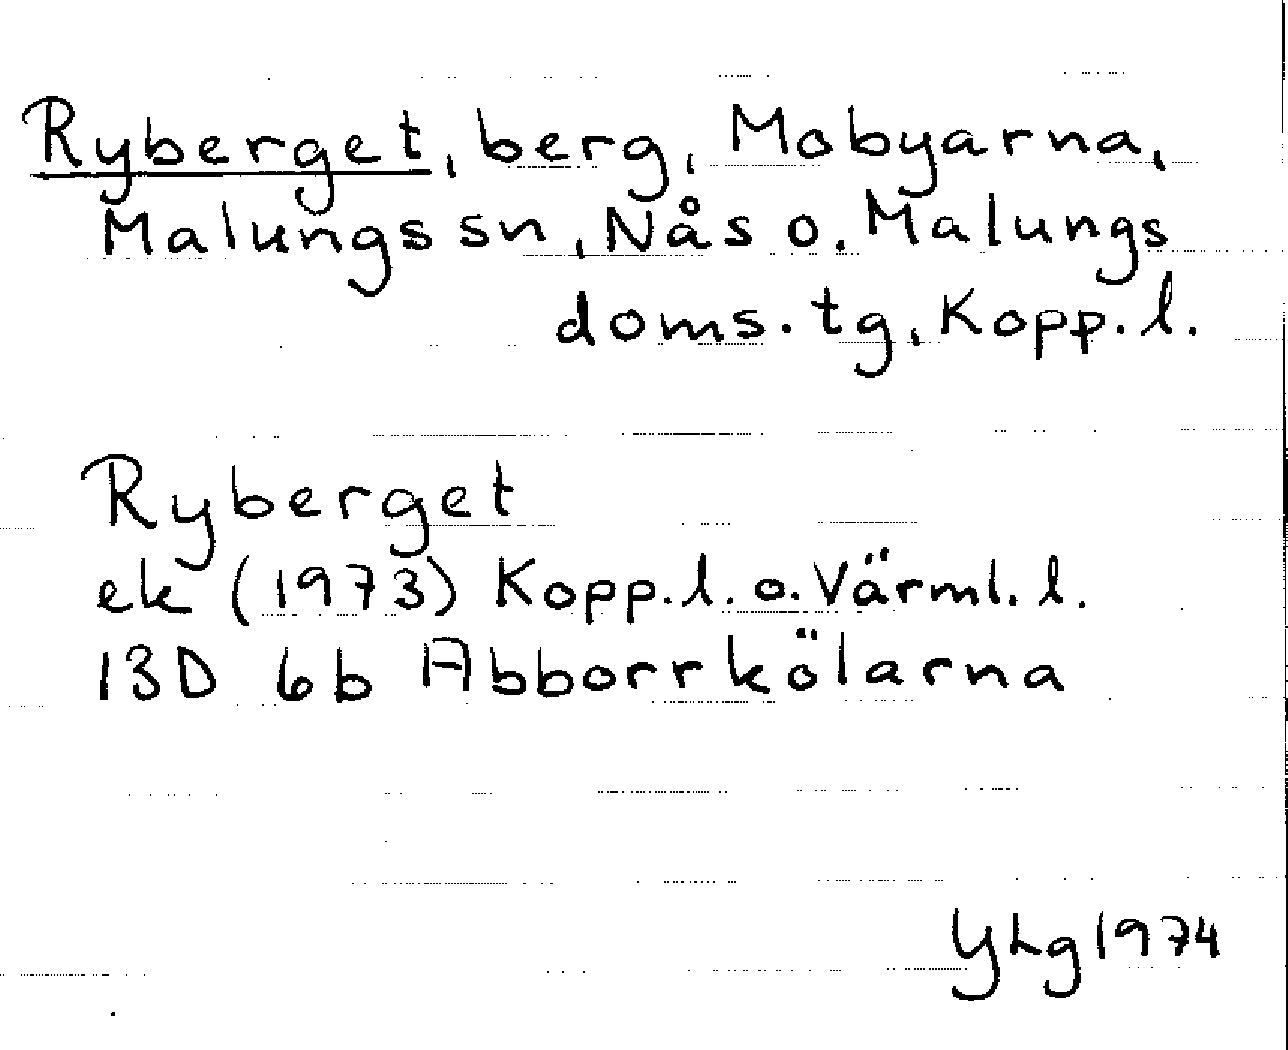 Ryberget, berg, Mobyarna,
Malungs sn, Nås o. Malungs
doms. tg, Kopp. l.
Ryberget
ek (1973) Kopp. l. o. Värml. l.
13D 6b Abborrkölarna
YLg 1974